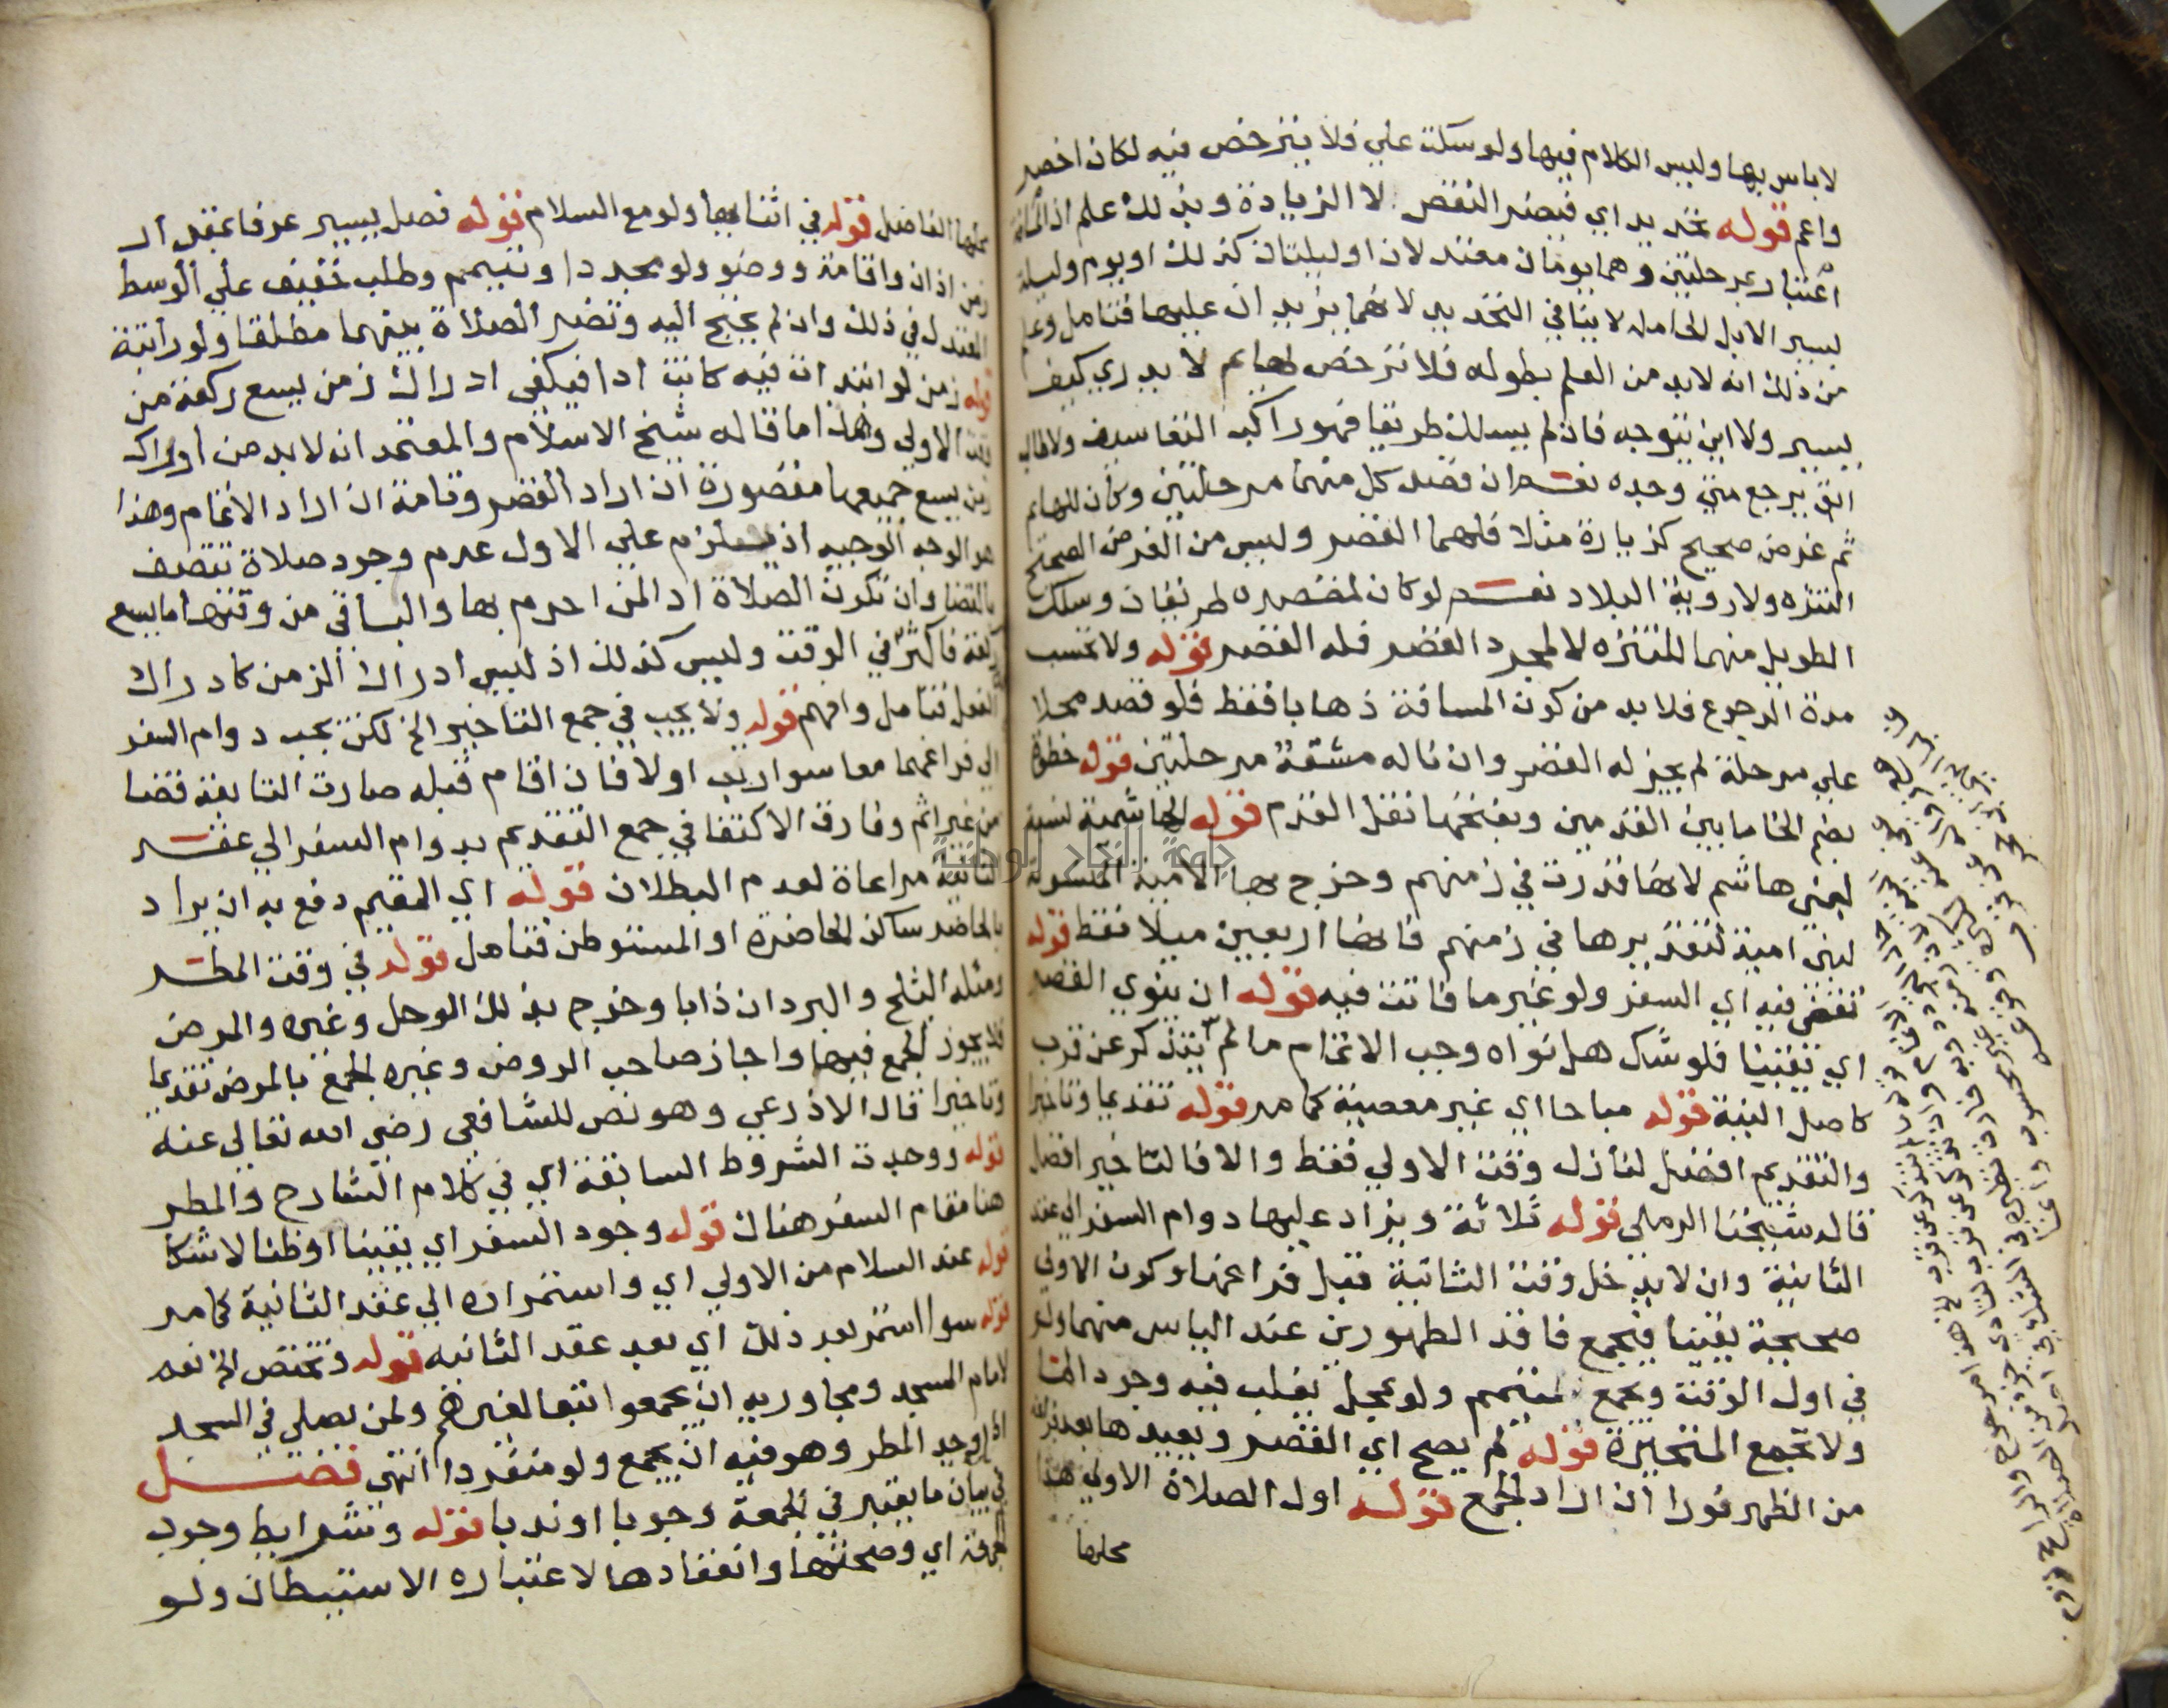 لا باس بها وليس الكلام فيها ولو سكت علي فلا يترخص فيه لكان اخصر
واعم قوله تحديد اي فيضر النقص لا الزيادة وبذلك علم ان المسافة
اعتبار بمرحلتين وهما يومان معتدلان او ليلتان كذلك او يوم وليلة
بسير الابل الحاملة لا ينافي التحديد لانهما يزيدان عليها فتامل وعلم
من ذلك انه لابد من العلم بطوله فلا ترخص لهايم لا يدري كيف
يسير ولا اين يتوجه فان لم يسلك طريقا فهو راكب التعاسيف ولا طالب
ابق يرجع متي وجده نعم ان قصد كل منهما مرحلتين وكان للهايم
ثم غرض صحيح كزيارة مثلا فلهما القصر وليس من الغرض الصحيح
التنزه ولا روية البلاد نعم لو كان لمقصده طريقان وسلك
الطويل منهما للتنزه لا لمجرد القصر فله القصر قوله ولا تحسب
مدة الرجوع فلابد من كون المسافة ذهابا فقط فلو قصد محلا
علي مرحلة لم يجز له القصر وان ناله مشقة مرحلتين قوله خطوة
بضم الخا ما بين القدمين وبفتحها نقل القدم قوله الهاشمية نسبة
لبني هاشم لانها قدرت في زمنهم وخرج بها الاموية المنسوبة
لبني امية لتقديرها في زمنهم فانها اربعين ميلا فقط قوله
تقضي فيه اي السفر ولو غير ما فاتت فيه قوله ان ينوي القصر
اي يقينيا فلو شك هل نواه وجب الاتمام ما لم يتذكر عن قرب
كاصل النية قوله مباحا اي غير معصية كما مر قوله تقديما وتاخيرا
والتقديم افضل لنازل وقت الاولي فقط والا فالتاخير افضل
قاله شيخنا الرملي قوله ثلاثة ويزاد عليها دوام السفر الي عقد
الثانية وان لا يدخل وقت الثانية قبل فراغها وكون الاولي
صحيحة يقينا فيجمع فاقد الطهورين عند الياس منهما ولو
في اول الوقت ويجمع المتيمم ولو بمحل يغلب فيه وجود الما
ولا تجمع المتحيرة قوله لم يصح اي القصر ويعيدها بعد
من الظهر فورا ان اراد الجمع قوله اول الصلاة الاولي هذا
محلها
محلها الفاضل قوله في اثنايها ولو مع السلام قوله فصل يسير عرفا
زمن اذان واقامة ووضو ولو مجددا وتيمم وطلب خفيف علي الوسط
المعتدل في ذلك وان لم يحتج اليه وتضر الصلاة بينهما مطلقا ولو راتبة
قوله زمن لو ابتدات فيه كانت ادا فيكفي ادراك زمن يسع ركعة من
وقت الاولي وهذا ما قاله شيخ الاسلام والمعتمد انه لابد من ادراك
زمن يسع جميعها مقصورة ان اراد القصر وتامة ان اراد الاتمام وهذا
هو الوجه الوجيه اذ يلزم علي الاول عدم وجود صلاة تتصف
بالقضا وان تكون الصلاة ادا لمن احرم بها والباقي من وقتها ما يسع
ركعة فاكثر في الوقت وليس كذلك اذ ليس ادراك الزمن كادراك
الفعل فتامل وافهم قوله ولا يجب في جمع التاخير الخ لكن يجب دوام السفر
الي فراغهما معا سوا رتب اولا فان اقام قبله صارت التابعة قضا
من غير اثم وفارق الاكتفا في جمع التقديم بدوام السفر الي عقد
الثانية مراعاة لعدم البطلان قوله اي المقيم دفع به ان يراد
بالحاضر ساكن الحاضرة او المستوطن فتامل قوله في وقت المطر
ومثله الثلج والبرد ان ذابا وخرج بذلك الوحل وغيره والمرض
فلا يجوز الجمع فيها واجاز صاحب الروض وغيره الجمع بالمرض تقديما
وتاخيرا قال الاذرعي وهو نص للشافعي رضي الله تعالي عنه
قوله ووجدت الشروط السابقة اي في كلام الشارح والمطر
هنا مقام السفر هناك قوله وجود السفر اي يقينا او ظنا لا شكا
قوله عند السلام من الاولي اي واستمراره الي عقد الثانية كما مر
قوله سوا استمر بعد ذلك اي بعد عقد الثانية قوله وتختص الخ نعم
لامام المسجد ومجاوريه ان يجمعوا تبعا لغيرهم ولمن يصلي في المسجد
اذا وجد المطر وهو فيه ان يجمع ولو منفردا انتهي فصل
في بيان ما يعتبر في الجمعة وجوبا او ندبا قوله وشرايط وجوب
الجمعة اي وصحتها وانعقادها لاعتباره الاستيطان ولو
جامعة النجاح الوطنية